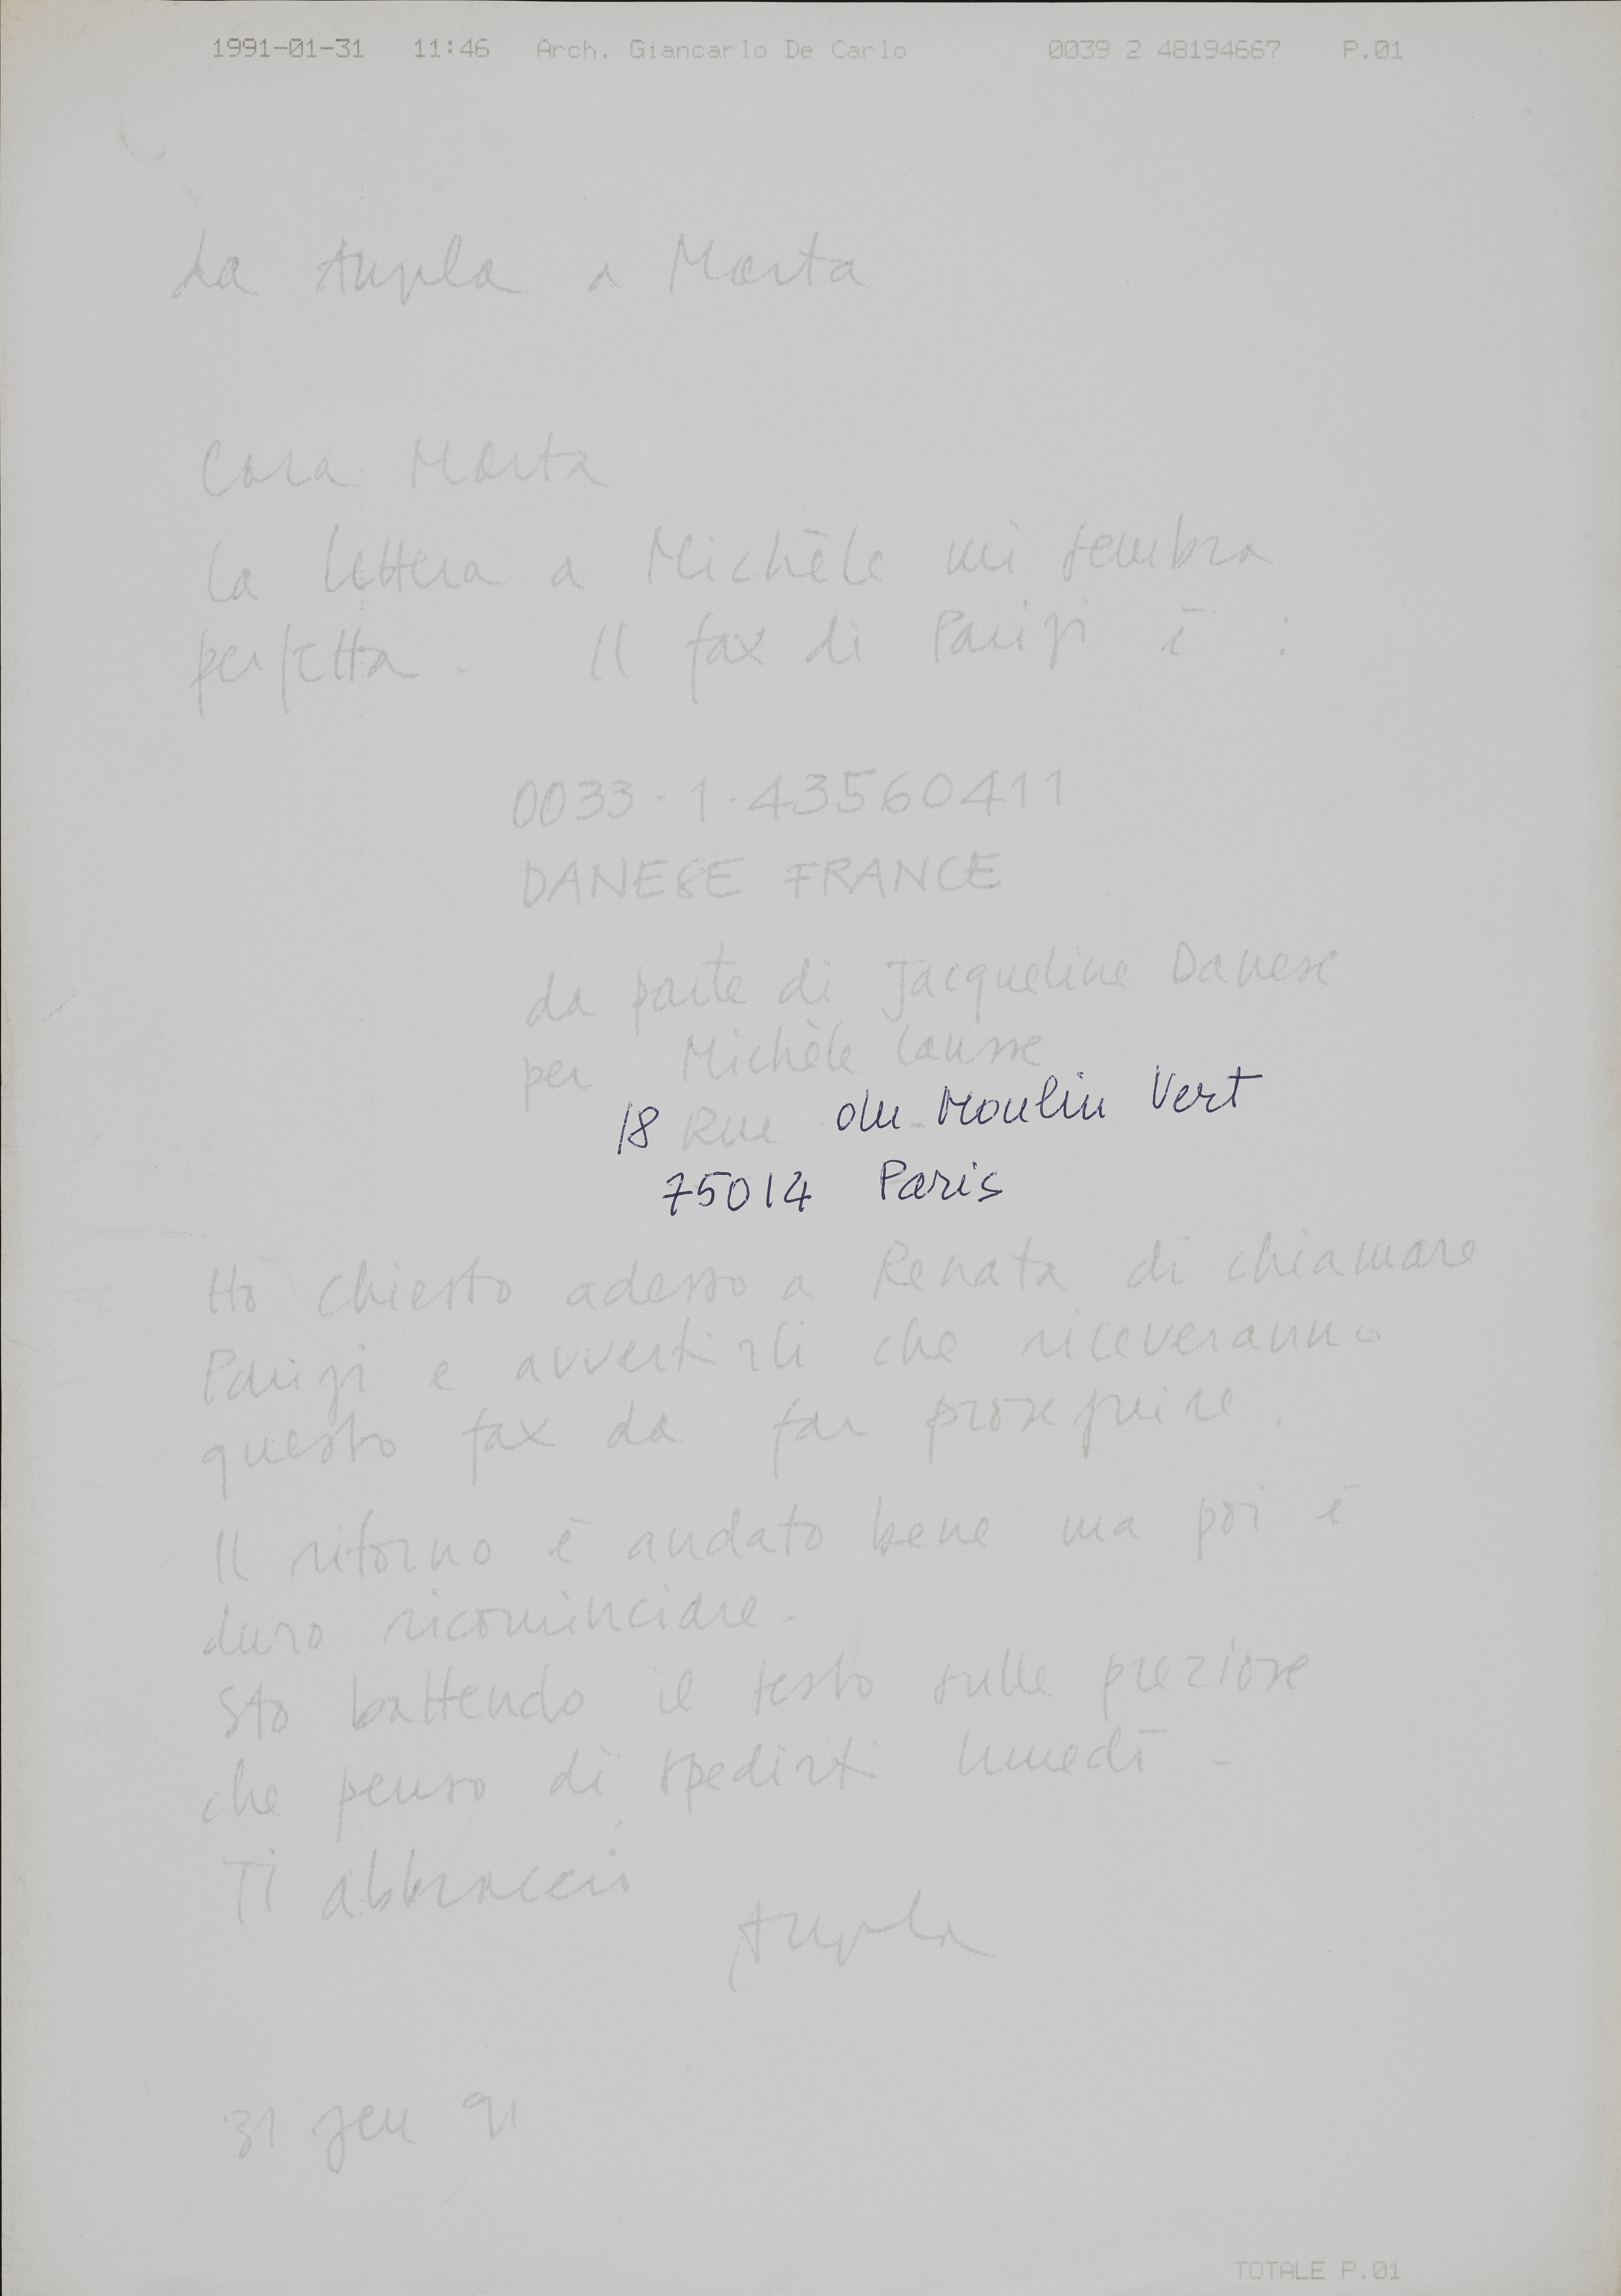 1991-01-31 11:46 Arch. Giancarlo De Carlo 0039 2 48194667 P.01
da Angela a Marta
Cara Marta
la lettera a Michèle mi sembra
perfetta. Il fax di Parigi è :
0033-1-43560411
DANESE FRANCE
da parte di Jacqueline Danese
per Michèle Causse
18 Rue du Moulin Vert
75014 Paris
Ho chiesto adesso a Renata di chiamare
Parigi e avvertirli che riceveranno
questo fax da far proseguire.
Il ritorno è andato bene ma poi è
duro ricominciare.
Sto battendo il testo sulle preziose
che penso di spedirti lunedì -
Ti abbraccio
Angela
31 gen 91
TOTALE P.01